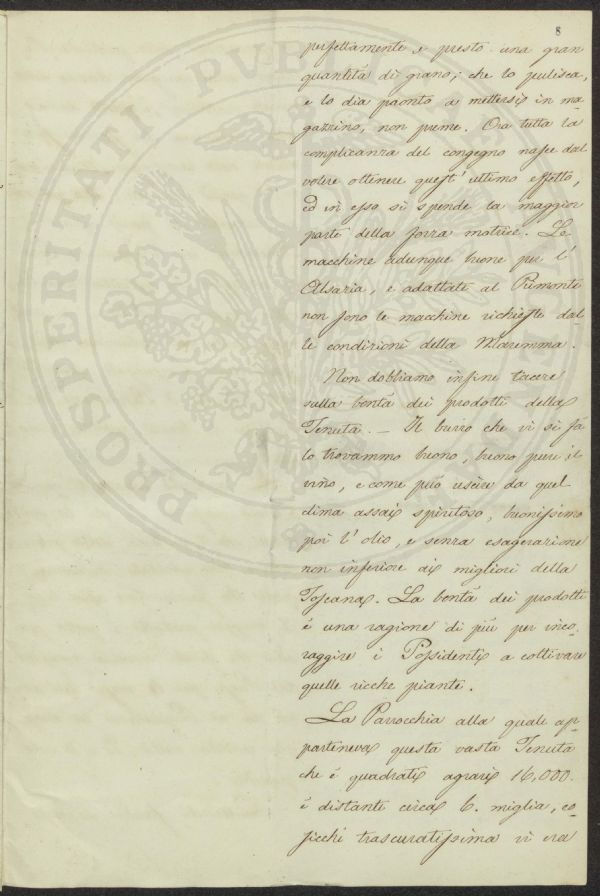 8
perfettamente e presto una gran
quantità di grano; che lo pulisca,
e lo dia pronto a mettersi in ma-
gazzino, non preme. Ora tutta la
complicanza del congegno nasce dal
volere ottenere quest' ultimo effetto,
ed in esso si spende la maggior
parte della forza motrice. Le
macchine adunque buone per l'
Alsazia, e adattate al Piemonte
non sono le macchine richieste dal-
le condizioni della Maremma.
Non dobbiamo infine tacere
sulla bontà dei prodotti della
Tenuta. — Il burro che vi si fa
lo trovammo buono, buono pure il
vino, e come può uscire da quel
clima assai spiritoso, buonissimo
poi l' olio, e senza esagerazione
non inferiore ai migliori della
Toscana. La bontà dei prodotti
è una ragione di più per inco-
raggire i Possidenti a coltivare
quelle ricche piante.
La Parrocchia alla quale ap-
parteneva questa vasta Tenuta
che è quadrati agrari 16,000.
è distante circa 6. miglia, co-
sicchè trascuratissima vi era
PROSPERITATI PUBLICAE